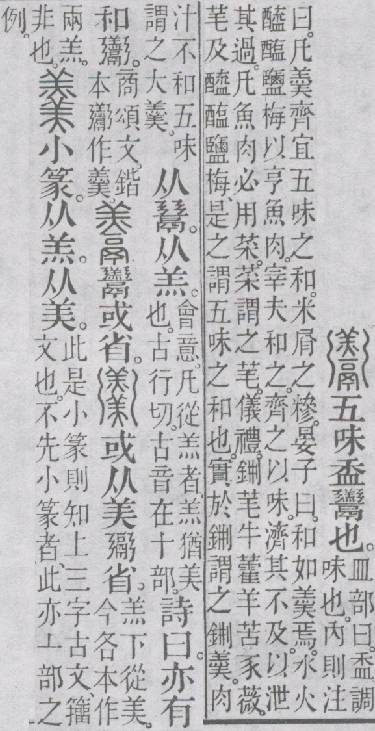 五味盉𩱧也。
皿部曰。盉、調
味也。內則注
曰。凡羹齊宜五味之和。米屑之糝。晏子曰。和如羹焉。水火
醯醢鹽梅以亨魚肉。宰夫和之。齊之以味。濟其不及。以泄
其過。凡魚肉必用菜。菜謂之芼。儀禮。鉶芼牛藿羊苦豕薇。
芼及醯醢鹽梅、是之謂五味之和也。實於鉶謂之鉶羹。肉
汁不和五味
謂之大羹。
从𩰲。从羔。
會意。凡從羔者、羔猶美
也。古行切。古音在十部。
詩曰。亦有
和𩱧。
商頌文。鍇
本𩱧作羹
𩱧或省。
或从美。𩱧省。
羔下從美。
今各本作
兩羔。
非也。
小篆。从羔。从美。
此是小篆、則知上三字古文、籒
文也。不先小篆者、此亦丄部之
例。